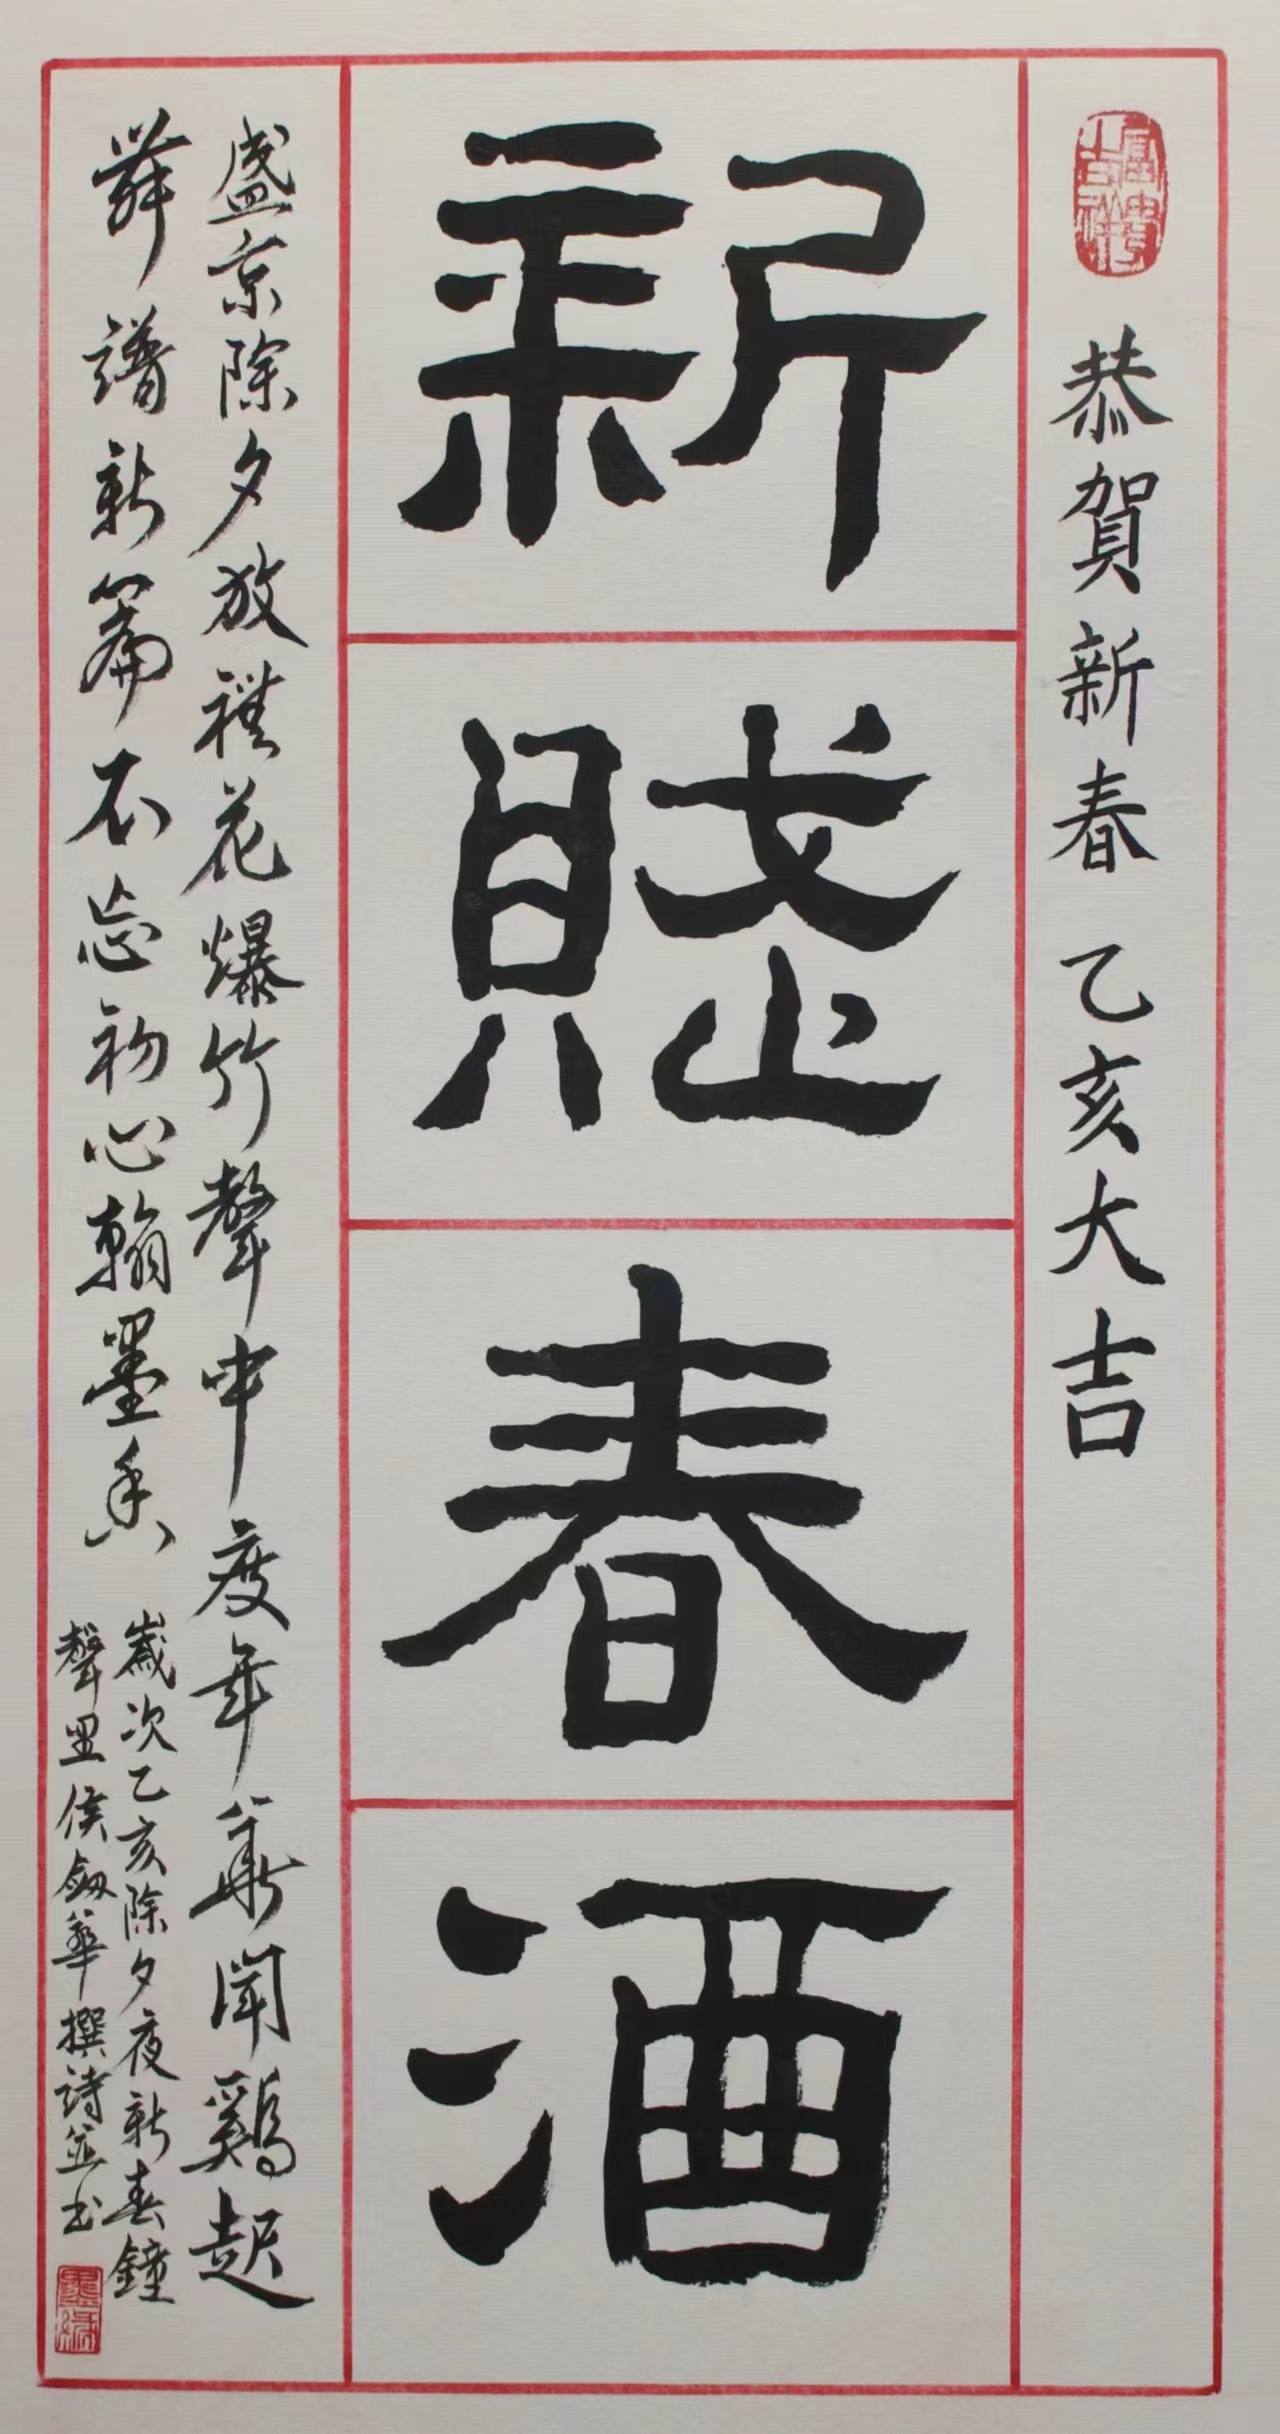 恭賀新春 乙亥大吉
新
賦
春
酒
盛京除夕放禮花爆竹聲中度年華聞鷄起
舞譜新篇不忘初心翰墨香
歲次乙亥除夕夜新春鐘
聲里侯劍華撰詩並书